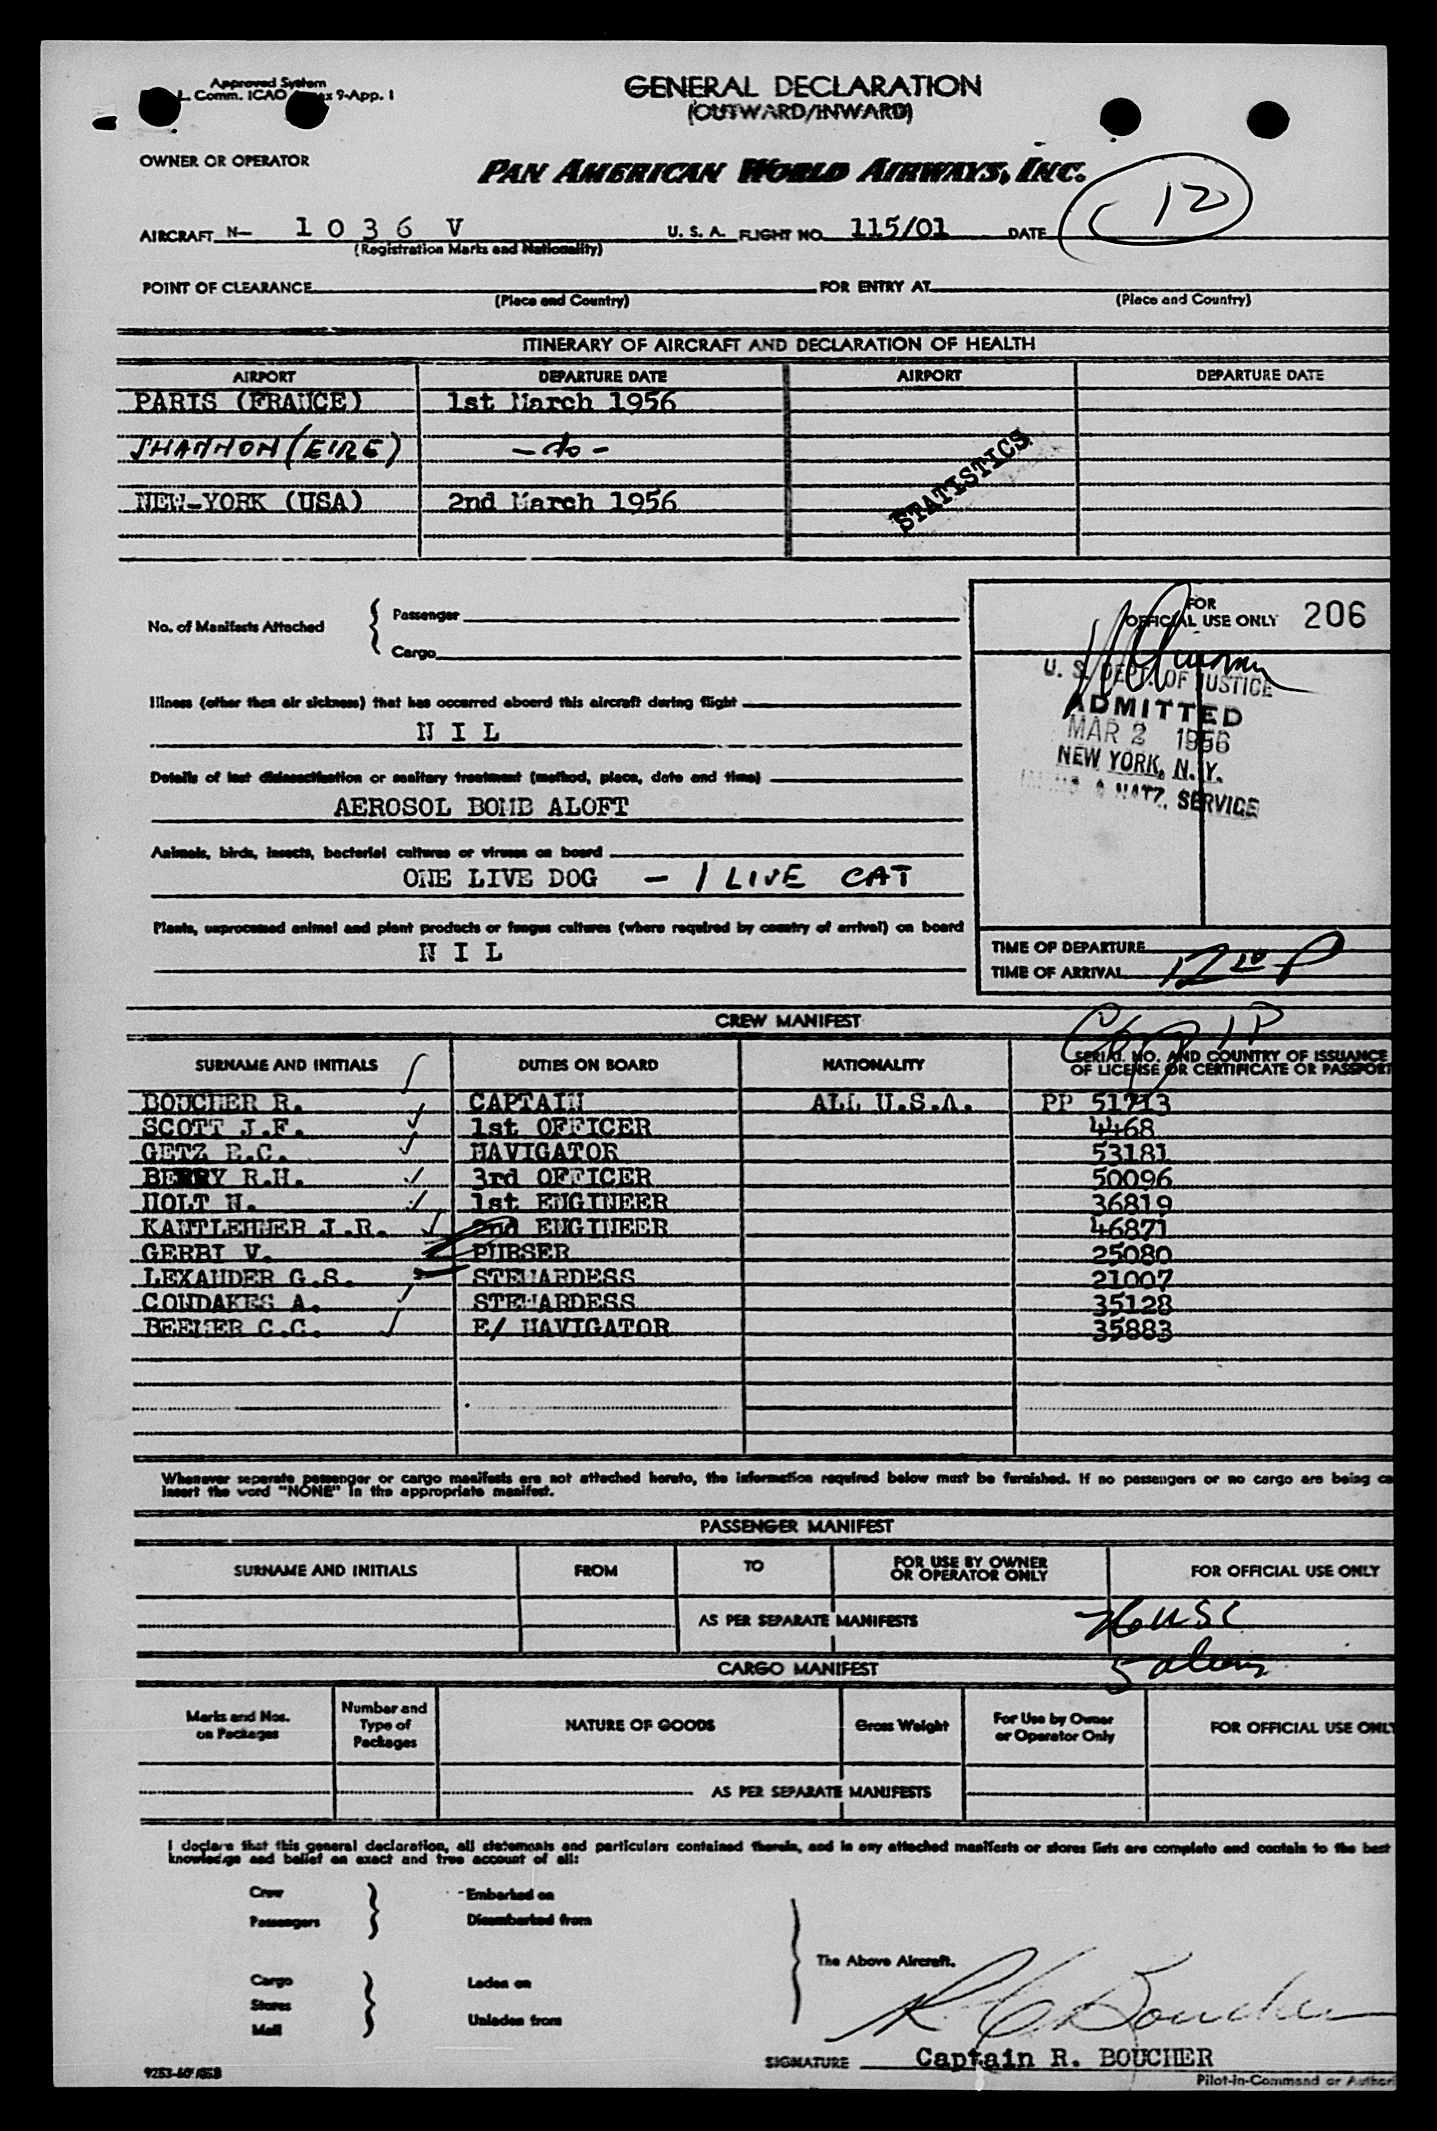 Approved System
L. Comm. ICAO x 9-App. I
GENERAL DECLARATION
(OUTWARD/INWARD)
OWNER OR OPERATOR
PAN AMERICAN WORLD AIRWAYS, INC.
12
AIRCRAFT N- 1 0 3 6 V U. S. A. FLIGHT NO. 115/01 DATE
(Registration Marks and Nationality)
POINT OF CLEARANCE FOR ENTRY AT
(Place and Country) (Place and Country)
ITINERARY OF AIRCRAFT AND DECLARATION OF HEALTH
AIRPORT DEPARTURE DATE AIRPORT DEPARTURE DATE
PARIS (FRANCE) 1st March 1956
SHANNON (EIRE) - do -
STATISTICS
NEW-YORK (USA) 2nd March 1956
No. of Manifests Attached { Passenger
Cargo
FOR
OFFICIAL USE ONLY 206
U. S. DEPT. OF JUSTICE
ADMITTED
MAR 2 1956
NEW YORK, N. Y.
& NATZ. SERVICE
Illness (other than air sickness) that has occurred aboard this aircraft during flight
N I L
Details of last disinsectization or sanitary treatment (method, place, date and time)
AEROSOL BOMB ALOFT
Animals, birds, insects, bacterial cultures or viruses on board
ONE LIVE DOG - 1 LIVE CAT
Plants, unprocessed animal and plant products or fungus cultures (where required by country of arrival) on board
N I L
TIME OF DEPARTURE
TIME OF ARRIVAL 12 10 P
CREW MANIFEST
SURNAME AND INITIALS DUTIES ON BOARD NATIONALITY SERIAL NO. AND COUNTRY OF ISSUANCE
OF LICENSE OR CERTIFICATE OR PASSPORT
BOUCHER R. CAPTAIN ALL U.S.A. PP 51713
SCOTT J.F. 1st OFFICER 4468
GETZ E.C. NAVIGATOR 53181
BERRY R.H. 3rd OFFICER 50096
HOLT H. 1st ENGINEER 36819
KANTLEHNER J.R. 2nd ENGINEER 46871
GERBI V. PURSER 25080
LEXANDER G.S. STEWARDESS 21007
CONDAKES A. STEWARDESS 35128
BEEMER C.C. E/ NAVIGATOR 35883
Whenever separate passenger or cargo manifests are not attached hereto, the information required below must be furnished. If no passengers or no cargo are being ca
insert the word "NONE" in the appropriate manifest.
PASSENGER MANIFEST
SURNAME AND INITIALS FROM TO FOR USE BY OWNER
OR OPERATOR ONLY FOR OFFICIAL USE ONLY
AS PER SEPARATE MANIFESTS
76 USC
5 aliens
CARGO MANIFEST
Marks and Nos.
on Packages Number and
Type of
Packages NATURE OF GOODS Gross Weight For Use by Owner
or Operator Only FOR OFFICIAL USE ONLY
AS PER SEPARATE MANIFESTS
I declare that this general declaration, all statements and particulars contained therein, and in any attached manifests or stores lists are complete and contain to the best
knowledge and belief an exact and true account of all:
Crew
Passengers } Embarked on
Disembarked from
The Above Aircraft.
Cargo
Stores
Mail } Laden on
Unladen from
R C Boucher
SIGNATURE Captain R. BOUCHER
Pilot-in-Command or Authori